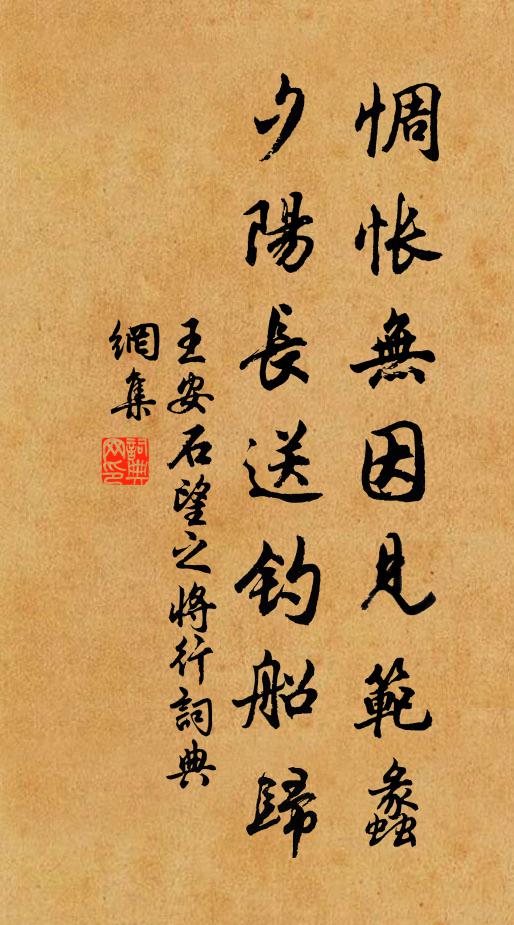 惆悵無因見範蠡
夕陽長送釣船歸
王安石望之將行詞典
網集
詞典網印